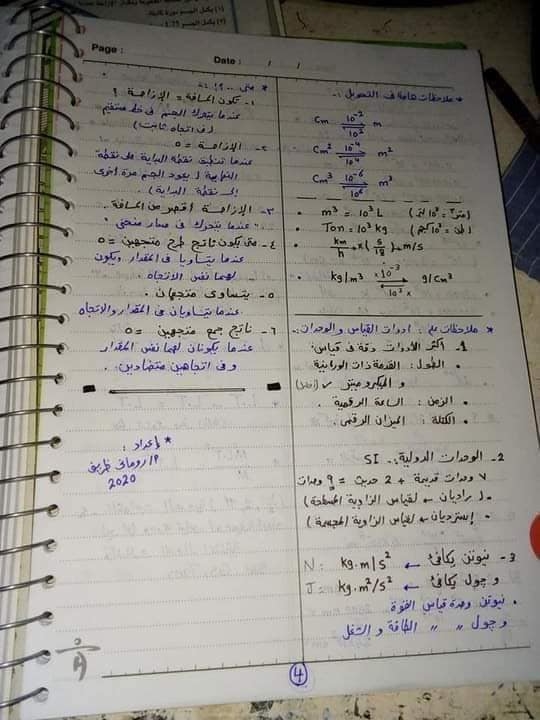 Page :
Date :   /   /
* ملاحظات هامة فى التحويل :-
Cm 10⁻² ⇌ 10² m
Cm² 10⁻⁴ ⇌ 10⁴ m²
Cm³ 10⁻⁶ ⇌ 10⁶ m³
• m³ = 10³ L
• Ton = 10³ kg
• km/h × (5/18) → m/s
• kg/m³ ×10⁻³ ⇌ 10³ × g/cm³
* ملاحظات على : ادوات القياس و الوحدات :-
1- أكثر الأدوات دقة فى قياس:
• الطول : القدمة ذات الورنية
و الميكرومتر
• الزمن : الساعة الرقمية .
• الكتلة : الميزان الرقمى .
2- الوحدات الدولية :. SI
٧ وحدات قديمة + 2 حديث = ٩ وحدات
راديان ← لقياس الزاوية المسطحة )
إسترديان ← لقياس الزاوية المجسمة )
3- نيوتن يكافئ ← N : kg.m/s²
و جول يكافئ ← J = kg.m²/s²
• نيوتن وحدة قياس القوة
و جول " " الطاقة و الشغل
* متى
١- تكون المسافة = الإزاحة ؟
عندما يتحرك الجسم فى خط مستقيم
( فى اتجاه ثابت )
٢- الإزاحة = ٥
عندما تنطبق نقطة البداية على نقطة
النهاية ( يعود الجسم مرة أخرى
إلى نقطة البداية ) .
٣- الإزاحة أقصر من المسافة .
عندما يتحرك فى مسار منحنى .
٤- متى يكون ناتج طرح متجهين = ٥
عندما يتساويا فى المقدار ويكون
لهما نفس الاتجاه .
٥- يتساوى متجهان .
عندما يتساويان فى المقدار والاتجاه
٦- ناتج جمع متجهين = ٥
عندما يكونان لهما نفس المقدار
و فى اتجاهين متضادين .
* إعداد :
٢/ رومانى ظريف
2020
4